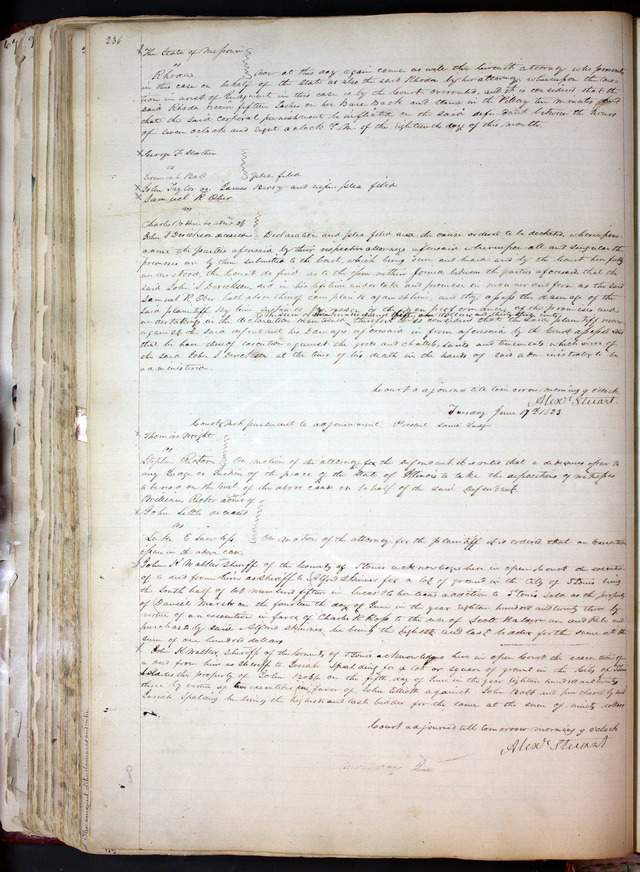 236
The State of Missouri
vs
Rhoda now at this day again come as well the Circuit attorney who prosecutes
in this case on behalf of the State as also the said Rhoda by her attorney, whereupon the mo-
tion in arrest of Judgment in this case is by the Court overruled, and it is considered that the
said Rhoda receive fifteen Lashes on her Bare Back and stand in the Pillory ten minutes and
that the said corporal punishment be inflicted on the said defendant between the hours
of seven oclock and eight oclock P.M. of the Eighteenth day of this month.
George F.
vs
Jeremiah Ball plea filed
John Taylor vs James Berry and wife plea filed
Samuel R Ober
vs
Charles admr of
John S Dereksen deceased Declaration and plea filed and the cause ordered to be docketed, whereupon
come the parties aforesaid by their respective attorneys aforesaid whereupon all and singular the
premises are by them submitted to the Court, which being seen and heard and by the Court here fully
understood, the Court do find as to the issue within formed between the parties aforesaid that the
said John S Dereksen, did in his lifetime undertake and promise in manner and form as the said
Samuel R. Ober hath above thereof complained against him, and they assess the damage of the
said plaintiff by him sustained by reason of the non performance of the promises and
undertakings in the declaration mentioned,
against the said defendant his damages aforesaid in form aforesaid by the Court assessed
that he have thereof execution against the goods and chattels, lands and tenements which were of
the said John S Dereksen at the time of his death in the hands of said administrator to be
administered.
Court adjourned till tomorrow morning 9 oclock
Alexr Stuart
Tuesday June 17th 1823
Court met pursuant to adjournment, Present same Judge
Thomas Wright
vs
Stephen Rector On motion of the attorney for the defendant it is ruled that a dedimus issue to
any Judge or Justice of the peace of the State of Illinois to take the depositions of witnesses
to be read on the trial of the above cause on behalf of the said defendant.
William Rector admr of
John Little deceased
vs
Luke E Lawless On motion of the attorney for the plaintiff it is ordered that an Execution
issue in the above case
John K Walker Sheriff of the County of St Louis acknowledges here in open Court the execution
of a deed from him as Sheriff to Alfred Skinner for a lot of ground in the City of St Louis being
the South half of lot number fifteen in Lucas' addition to St Louis sold as the property
of Daniel on the fourth day of June in the year eighteen hundred and twenty three by
virtue of an execution in favor of Charles R Ross to the use of Scott and
purchased by said Alfred Skinner, he being the highest and last bidder for the same at the
sum of one hundred dollars
John K Walker, Sheriff of the County of St Louis acknowledges here in open Court the execution of
a deed from him as Sheriff to Josiah Spalding for a lot or square of ground in the City of St Louis
sold as the property of John Bobb on the fifth day of June in the year eighteen hundred and twenty
three by virtue of two executions in favor of John Elliott against John Bobb and purchased by said
Josiah Spalding he being the highest and last bidder for the same at the sum of ninety dollars
Court adjourned till tomorrow morning 9 oclock
Alexr Stuart